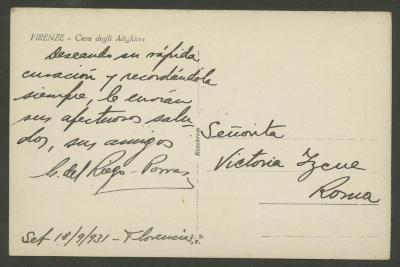 FIRENZE - Casa degli Alighieri
Deseando su rápida
curación y recordándola
siempre, le envían
sus afectuosos salu-
dos, sus amigos
C. del Riego-Porras
Set 18/9/931 - Florencia
Señorita
Victoria Izcue
Roma